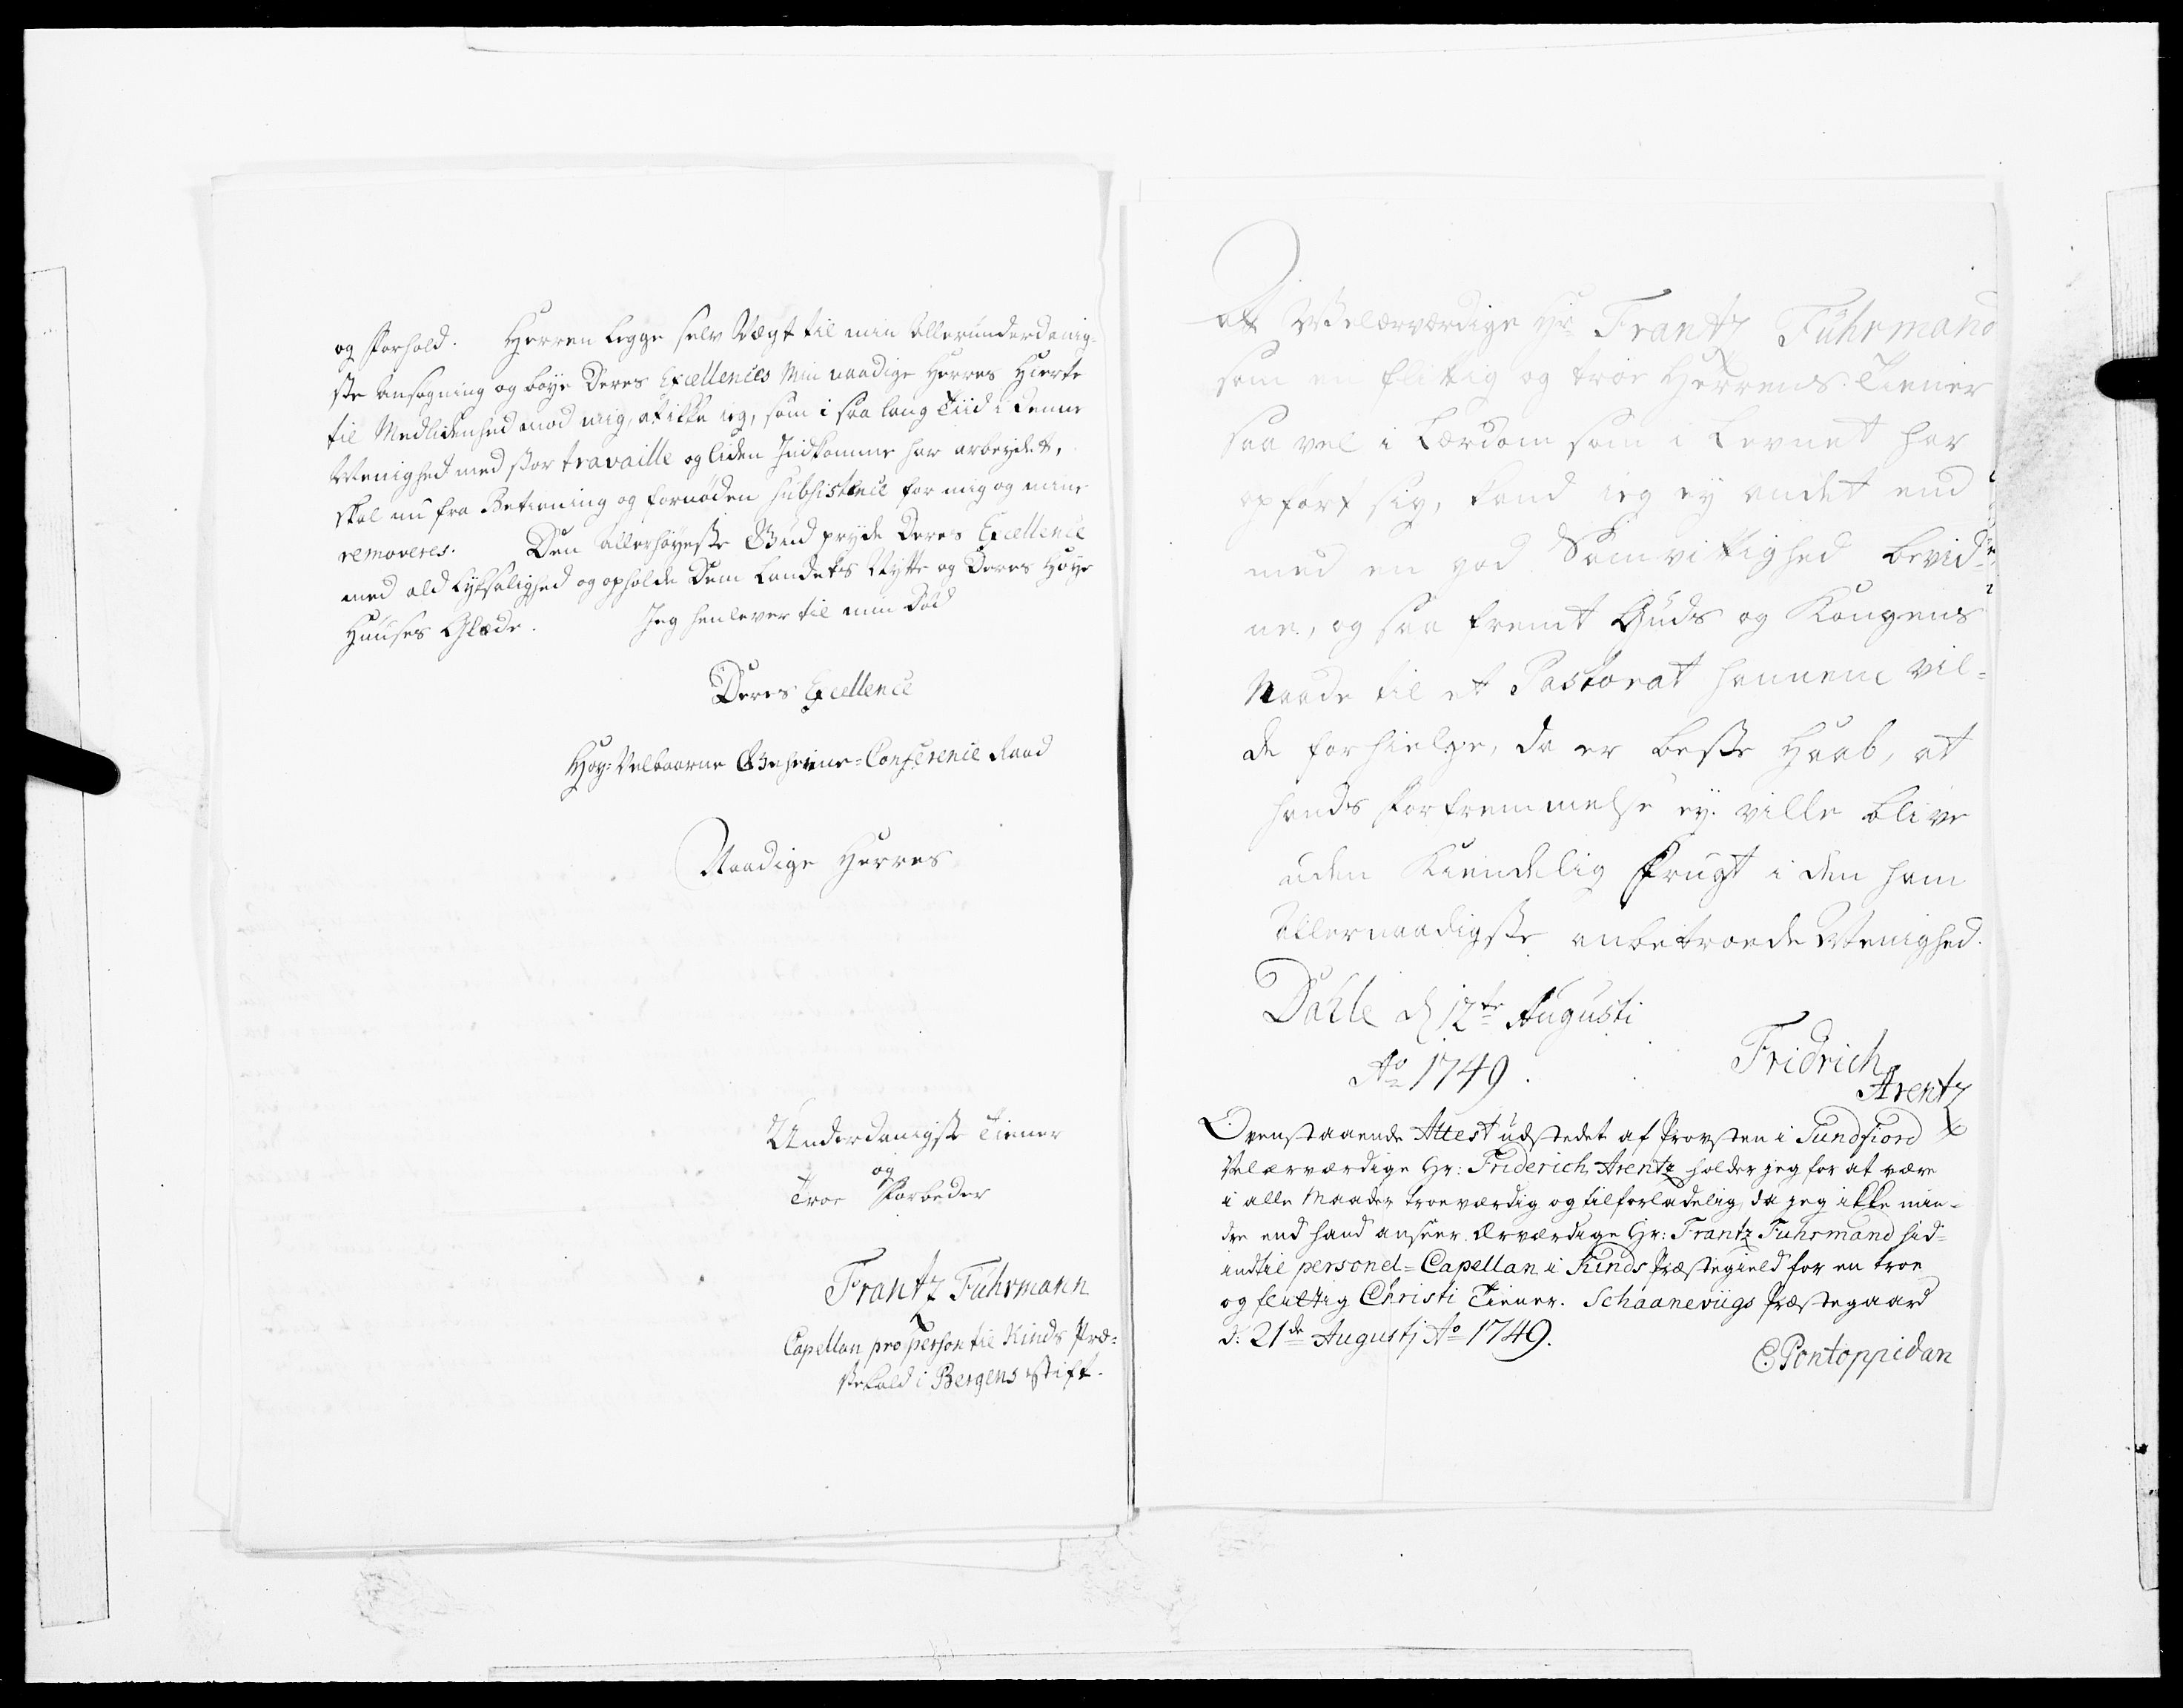 og Forhold. Herren legge selv Vægt til min Allerunderdanig-
ste Ansøgning og bøye Deres Excellences Min naadige Herres Hierte
til Medlidenhed mod mig, at ikke ieg, som i saa lang Tiid i denne
Menighed med stor travaille og liden Indkomme har arbeydet,
skal nu fra Betiening og fornøden subsistence for mig og mine
removeres. Den Allerhøyeste Gud pryde Deres Excellence
med ald Lyksalighed og opholde Dem Landets Nytte og Deres Høye
Huuses Glæde. Jeg henlever til min Død
Deres Excellence
Høy-Velbaarne Geheime-Conference Raad
Naadige Herres
Underdanigste Tiener
og
Troe Forbeder
Frantz Fuhrmann
Capellan pro persona til Kinds Præ-
stekald i Bergens Stift.
At Velærværdige Hr Frantz Fuhrmand
som en flittig og troe Herrens Tiener
saa vel i Lærdom som i Levnet har
opført sig, kand ieg ey andet end
med en god Samvittighed bevid-
ne, og saa fremt Guds og Kongens
Naade til et Pastorat hannem vil-
de forhielpe, da er beste Haab, at
hands Forfremmelse ey ville blive
uden Kiendelig Frugt i den ham
Allernaadigste anbetroede Menighed.
Dahle d 12te Augusti
Ao 1749.
Fridrich
Arentz
Ovenstaaende Attest udstedet af Provsten i Sundfiord
Velærværdige Hr: Friderich Arentz holder jeg for at være
i alle Maader troeværdig og tilforladelig, da jeg ikke min-
dre end hand anseer Ærværdige Hr: Frantz Fuhrmand hid-
indtil personel-Capellan i Kinds Præstegield for en troe
og flittig Christi Tiener. Schaaneviigs Præstegaard
d: 21de Augustj Ao 1749.
E Pontoppidan